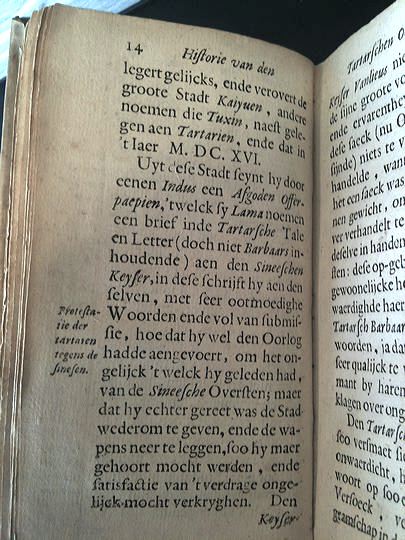 14 Historie van den
legert gelijcks, ende verovert de
groote Stadt Kaiyuen, andere
noemen die Tuxin, naest gele-
gen aen Tartarien, ende dat in
't Iaer M. DC. XVI.
Uyt dese Stadt seynt hy door
eenen Indus een Afgoden Offer-
paepien, 'twelck sy Lama noemen
een brief inde Tartarsche Tale
en Letter (doch niet Barbaars in-
houdende) aen den Sineeschen
Keyser, in dese schrift hy aen den
selven, met seer ootmoedighe
Woorden ende vol van submis-
sie, hoe dat hy wel den Oorlog
hadde aengevoert, om het on-
gelijck 't welck hy geleden had,
van de Sineesche Oversten; maer
dat hy echter gereet was de Stad
wederom te geven, ende de wa-
pens neer te leggen, soo hy maer
gehoort mocht werden, ende
satisfactie van 't verdrage onge-
lijck mocht verkryghen. Den
Keyser
Protesta-
tie der
tartaren
tegens de
sinesen.
Tartarschen
Keyser Vanlieus
de sijne groote
ende ervarenthe
dese saeck (nu
sijnde) niets te
handelde,
het een saeck was
nen gewicht, om
ver verhandelt te
deselve in handen
sten: dese op-geb
gewoonelijcke
waerdighde
Tartarsch Barbaar
woorden, ja dat
seer qualijck te
mant by haren
klagen over
Den Tartars
soo versmaet
onwaerdicht,
woort op
Versoeck,
gramschap in